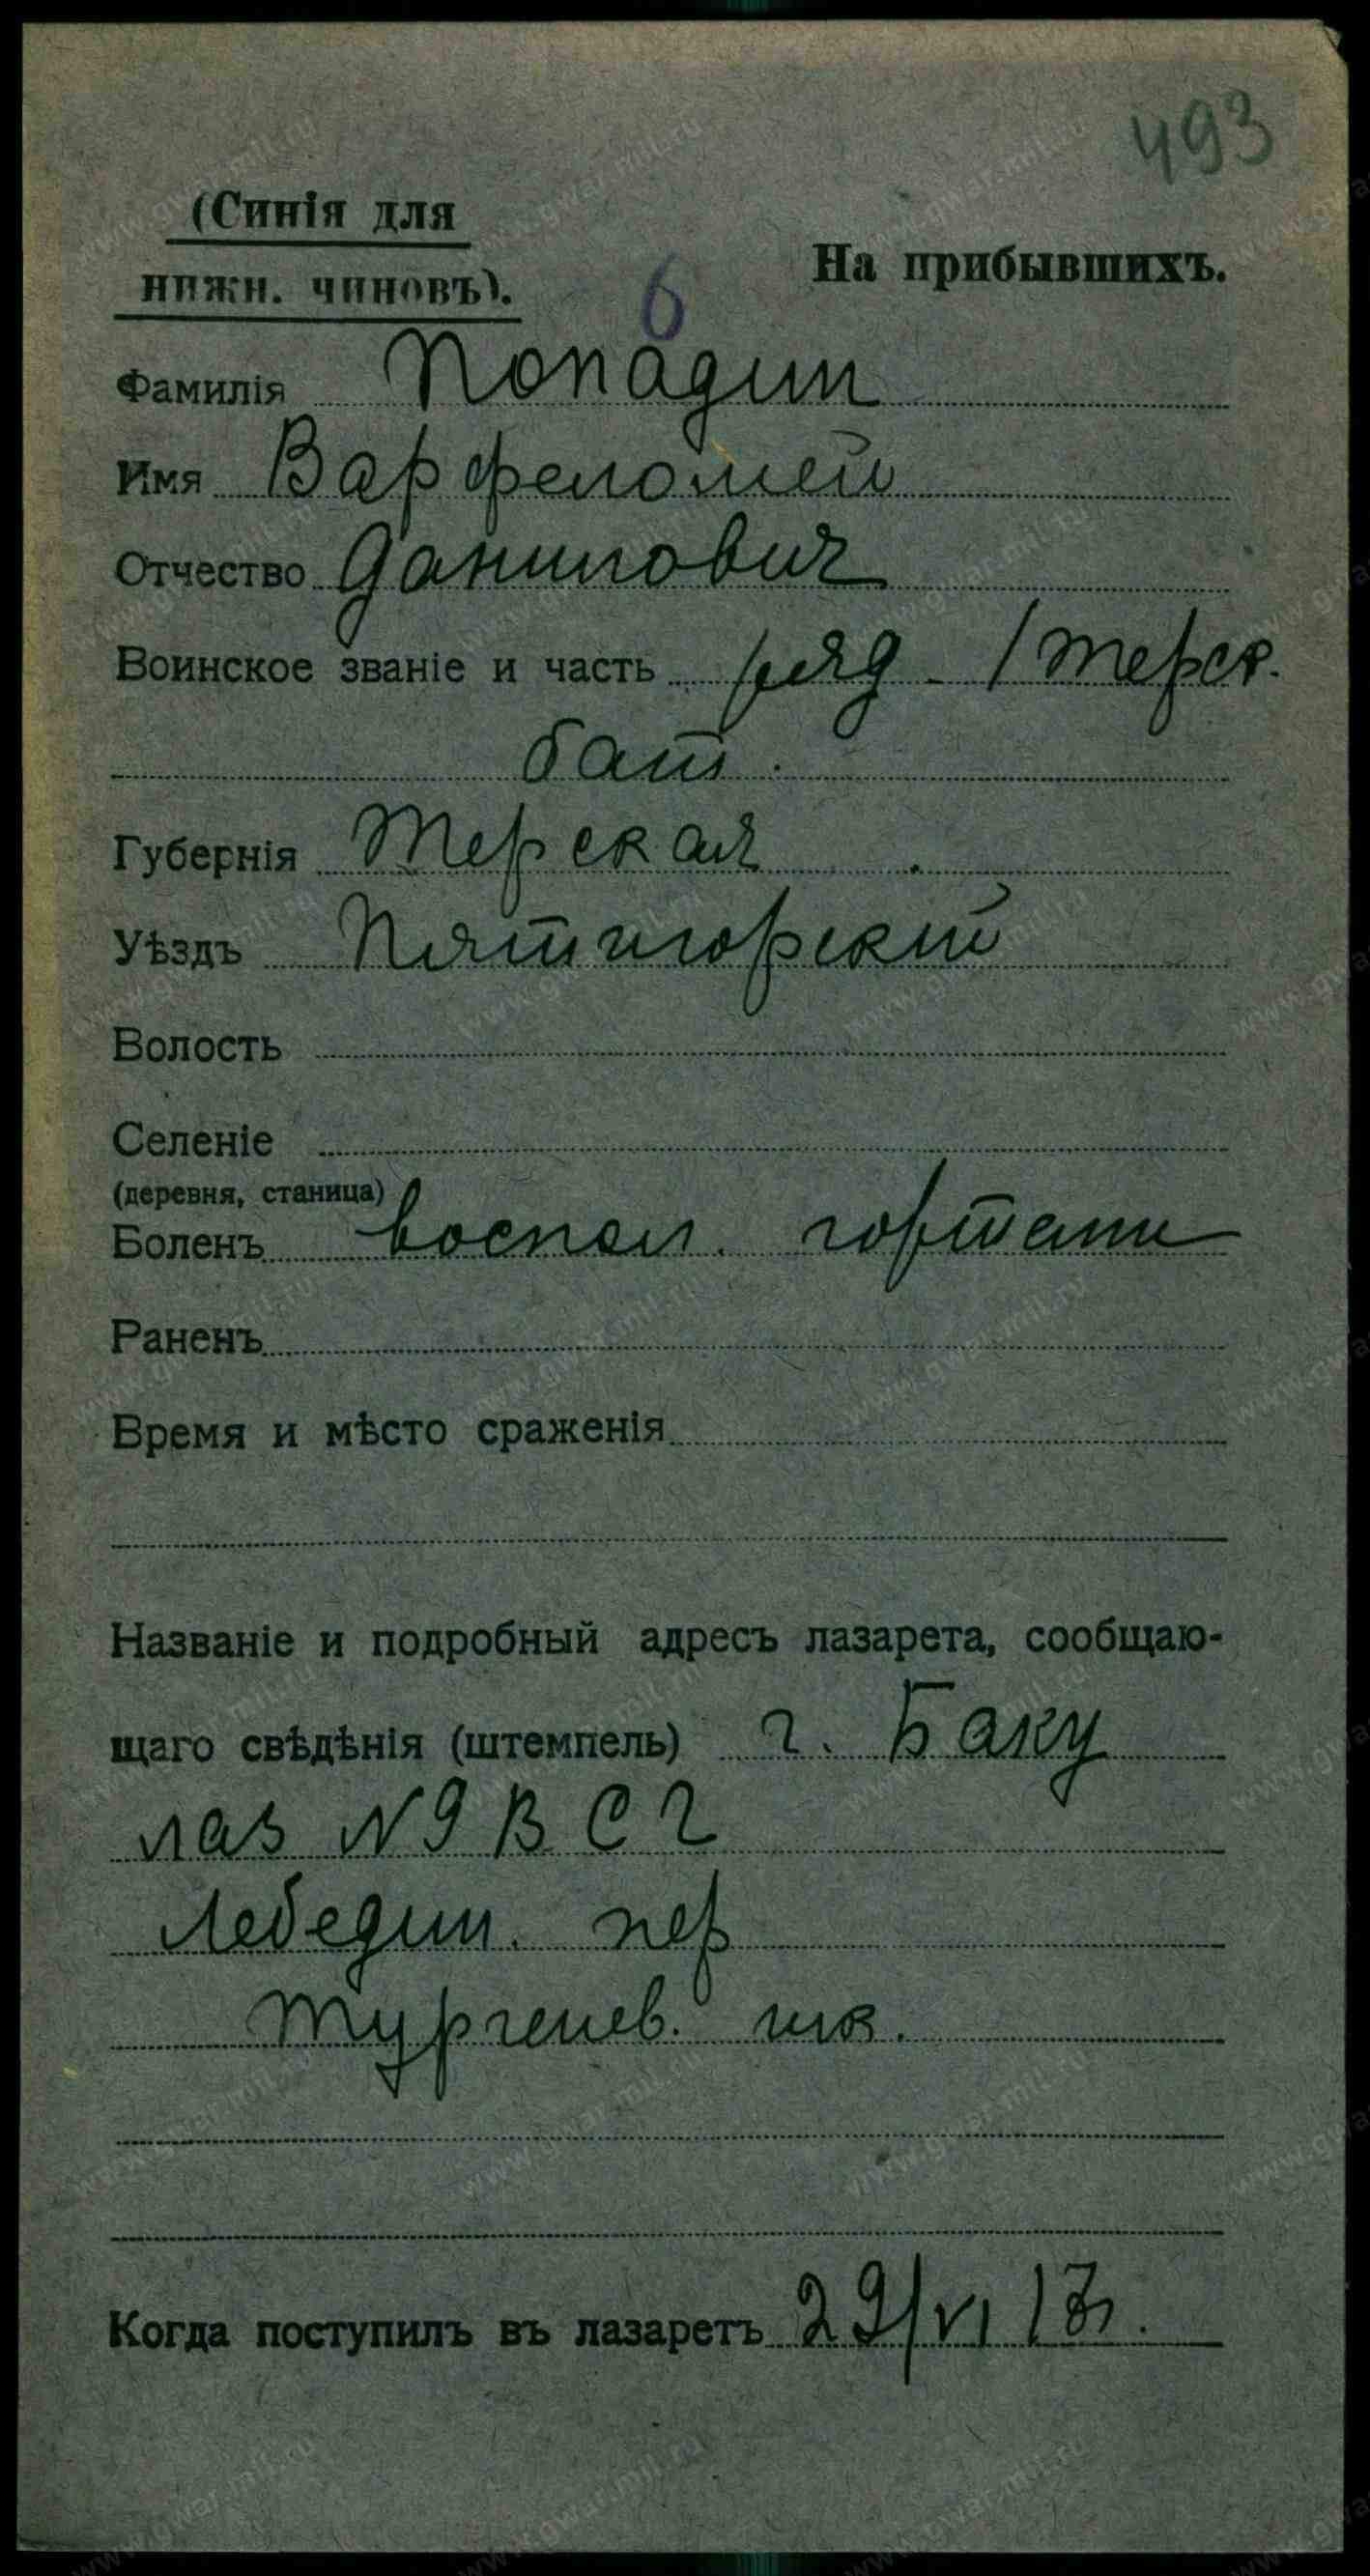 493
(Синія для
нижн. чиновъ).
На прибывшихъ.
6
Фамилія Попадин
Имя Варфеломей
Отчество Данилович
Воинское званіе и часть ряд - 1 Терск.
бат.
Губернія Терская
Уѣздъ Пятигорский
Волость
Селеніе
(деревня, станица)
Боленъ воспал. гортани
Раненъ
Время и мѣсто сраженія
Названіе и подробный адресъ лазарета, сообщаю-
щаго свѣдѣнія (штемпель) г. Баку
лаз N 9 В С Г
Лебедин. пер
Тургенев. шк.
Когда поступилъ въ лазаретъ 29/VI 17г.